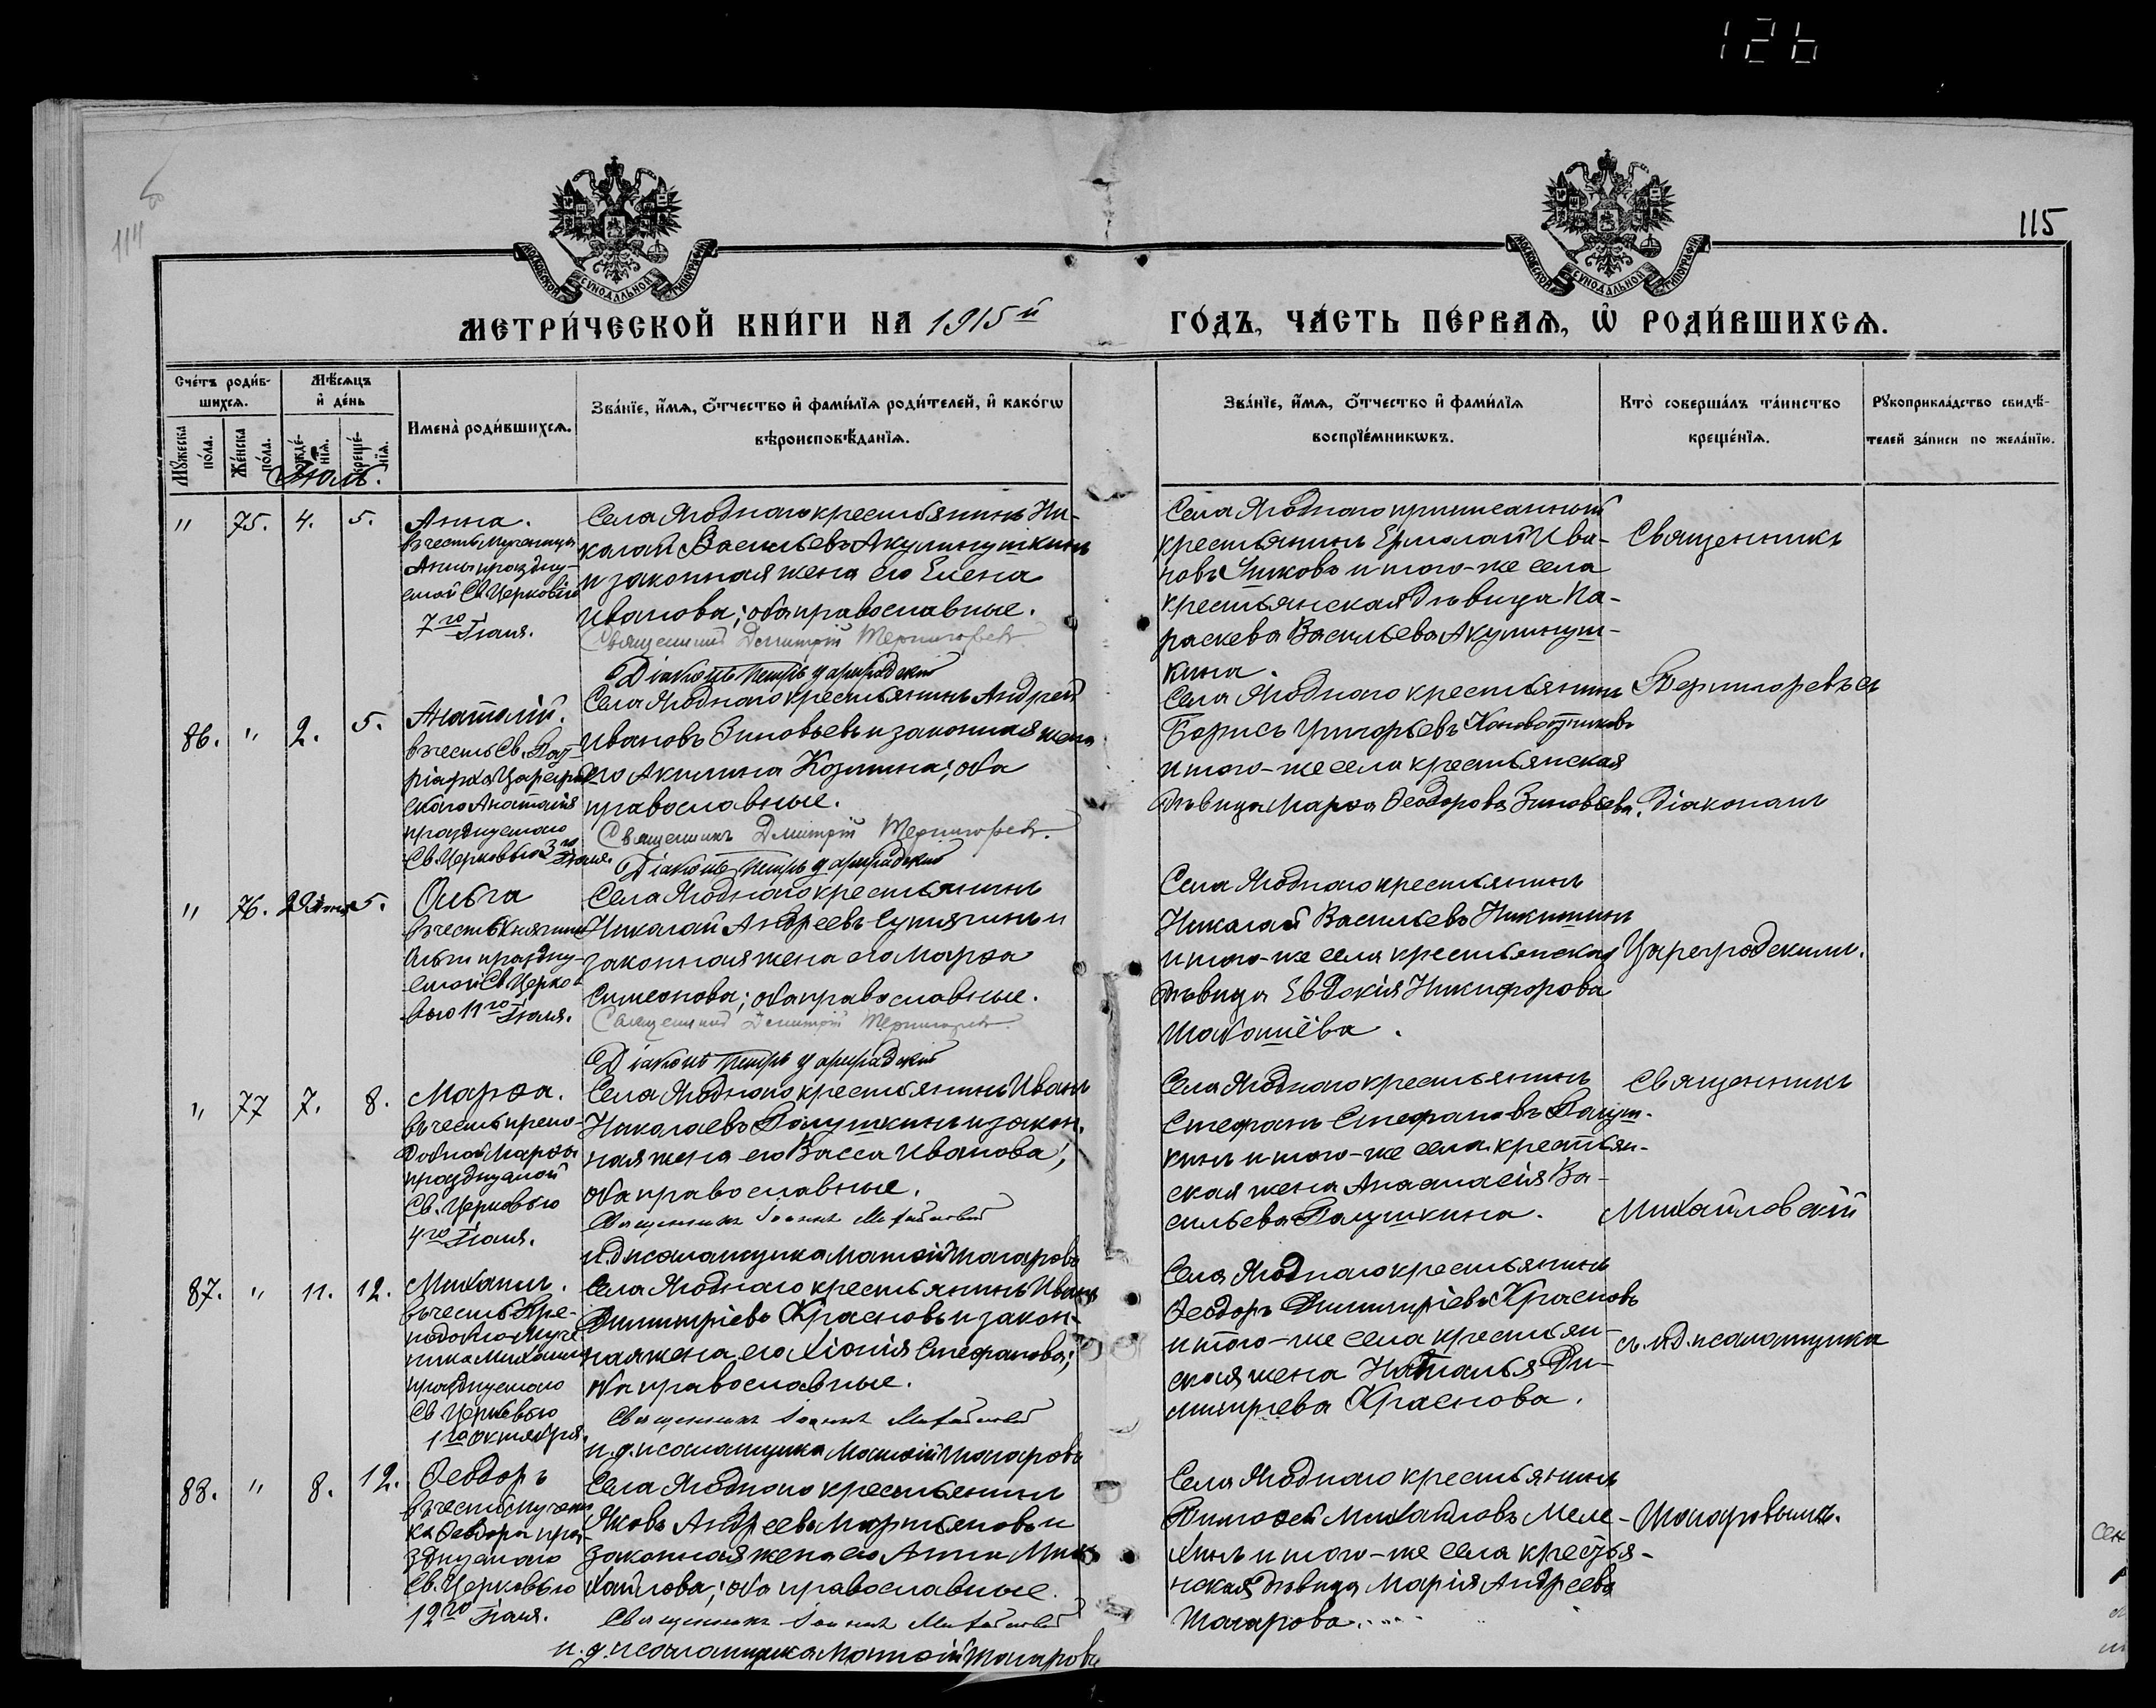 126
115
114
МОСКОВСКОЙ СѴНОДАЛЬНОЙ ТИПОГРАФІИ
МОСКОВСКОЙ СѴНОДАЛЬНОЙ ТИПОГРАФІИ
МЕТРИ́ЧЕСКОЙ КНИ́ГИ НА 1915й
ГО́ДЪ, ЧА́СТЬ ПЕ́РВАѦ, Ѡ҆ РОДИ́ВШИХСѦ.
Сче́тъ роди́в-
шихсѧ.
Мꙋ́жеска по́ла.
Же́нска по́ла.
Мѣ́сѧцъ
и҆ де́нь
рожде́-
нїѧ.
креще́-
нїѧ.
Имена̀ роди́вшихсѧ.
Зва́нїе, и҆́мѧ, ѻ҆́тчество и҆ фами́лїѧ роди́телей, и҆ како́гѡ
вѣроисповѣ́данїѧ.
Зва́нїе, и҆́мѧ, ѻ҆́тчество и҆ фами́лїѧ
воспрїе́мникѡвъ.
Кто̀ соверша́лъ та́инство
креще́нїѧ.
Рꙋкоприкла́дство свидѣ́-
телей за́писи по жела́нїю.
Іюль.
" 75. 4. 5.
Анна.
въ честь мученицы
Анны праздну-
емой Св. Церковію
7го Іюля.
Села Ягоднаго крестьянинъ Ни-
колай Васильевъ Акулинушкинъ
и законная жена его Елена
Иванова; оба православные.
Священникъ Димитрій Терпигорьевъ
Діаконъ Петръ Цареградскій
Села Ягоднаго приписанный
крестьянинъ Ермолай Ива-
новъ и того-же села
крестьянская дѣвица Па-
раскева Васильева Акулинуш-
кина.
Священникъ
Терпигорьевъ съ
86. " 2. 5.
Анатолій.
въ честь Св. Пат-
ріарха Цареград-
скаго Анатолія
празднуемаго
Св. Церковью 3го Іюля.
Села Ягоднаго крестьянинъ Андрей
Ивановъ Зиновьевъ и законная жена
его Акилина Козмина; оба
православные.
Священникъ Димитрій Терпигорьевъ.
Діаконъ Петръ Цареградскій
Села Ягоднаго крестьянинъ
Борисъ Григорьевъ Коноватниковъ
и того-же села крестьянская
дѣвица Марѳа Ѳеодорова Зиновьева.
Діаконом
" 76. 29 Іюня 5.
Ольга
въ честь Княгини
Ольги праздну-
емой Св. Церко-
вью 11го Іюля.
Села Ягоднаго крестьянинъ
Николай Андреевъ Супягинъ и
законная жена его Марѳа
Симеонова; оба православные.
Священникъ Димитрій Терпигорьевъ
Діаконъ Петръ Цареградскій
Села Ягоднаго крестьянинъ
Николай Васильевъ Никитинъ
и того-же села крестьянская
дѣвица Евдокія Никифорова
Цареградскимъ.
" 77 7. 8.
Марѳа.
въ честь препо-
добной Марѳы
празднуемой
Св. Церковью
4го Іюля.
Села Ягоднаго крестьянинъ Иванъ
Николаевъ Палушкинъ и закон.
ная жена его Васса Иванова;
оба православные.
Священникъ Іоаннъ Михайловскій
и.д. псаломщика Матѳій Шагаровъ
Села Ягоднаго крестьянинъ
Стефанъ Стефановъ Палуш-
кинъ и того-же села крестьян-
ская жена Анастасія Ва-
сильева Палушкина.
Священникъ
Михайловскій
87. " 11. 12.
Михаилъ.
въ честь Пре-
подобно-муче-
ника Михаила
празднуемаго
Св. Церковью
1го октября.
Села Ягоднаго крестьянинъ Иванъ
Димитріевъ Красновъ и закон-
ная жена его Хіонія Стефанова;
оба православные.
Священникъ Іоаннъ Михайловскій
и.д. псаломщика Матѳій Шагаровъ
Села Ягоднаго крестьянинъ
Ѳеодоръ Димитріевъ Красновъ
и того-же села крестьян-
ская жена Наталья Ди-
митріева Краснова.
съ и.д. псаломщика
88. " 8. 12.
Ѳеодоръ
въ честь мучени-
ка Ѳеодора пра-
зднуемаго
Св. Церковью
12го Іюля.
Села Ягоднаго крестьянинъ
Яковъ Андреевъ Мартьяновъ и
законная жена его Анна Ми-
хайлова; оба православные.
Священникъ Іоаннъ Михайловскій
и.д. псаломщика Матѳій Шагаровъ
Села Ягоднаго крестьянинъ
Тимоѳей Михайловъ Меле-
хинъ и того-же села крестья-
нская дѣвица Марія Андреева
Шагарова.
Шагаровымъ.